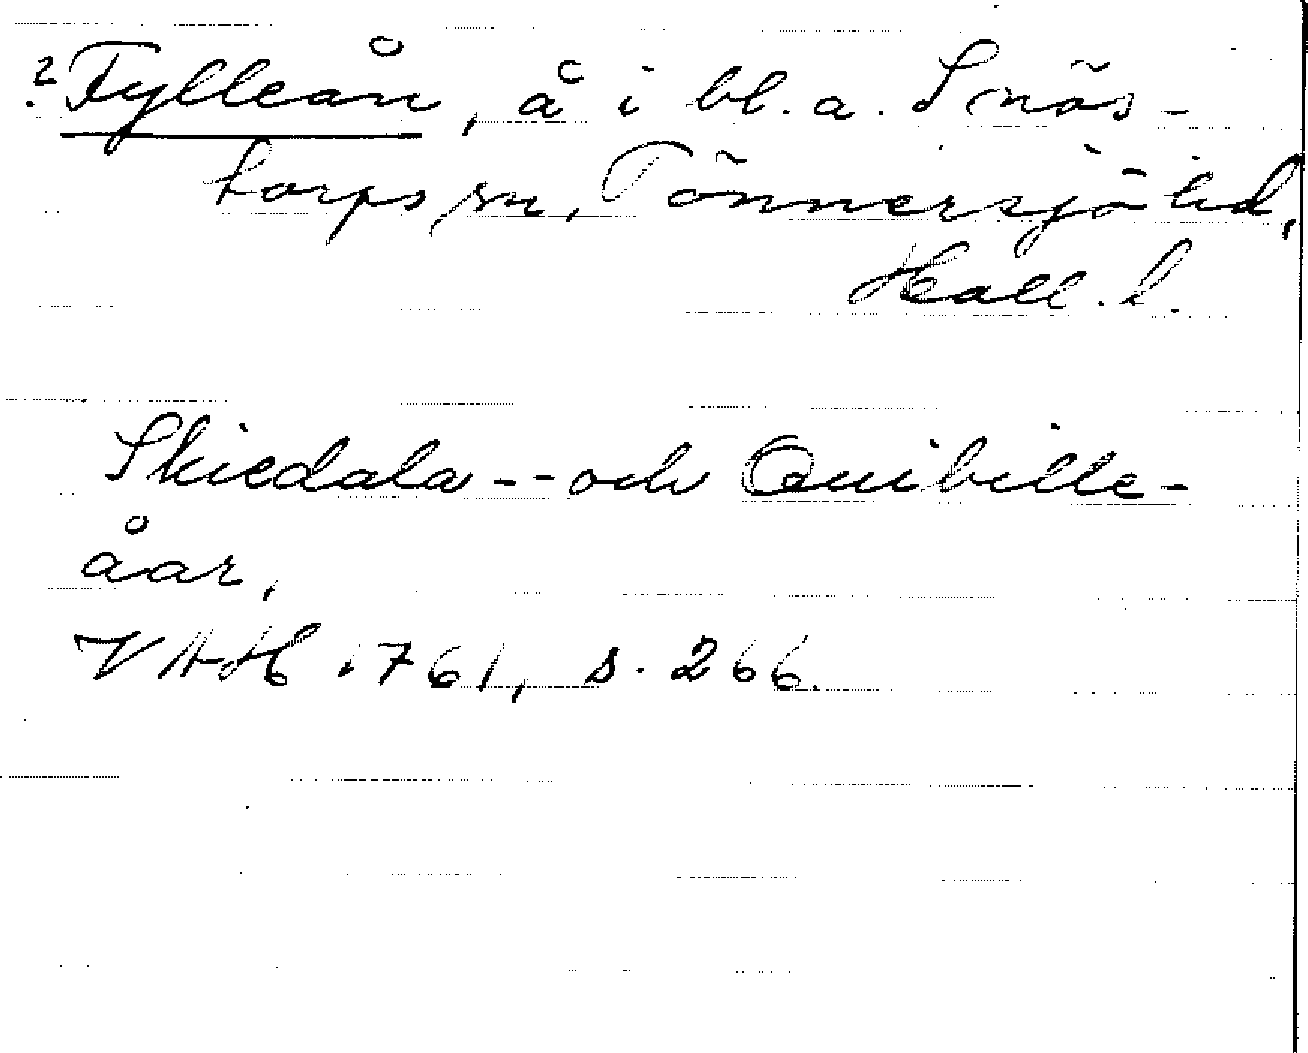 ? Fylleån, å i bl. a. Snös-
torps sn, Tönnersjö hd,
Hall. l.
Skiedala -- och Quibille-
åar,
VAH 1761, s. 266.